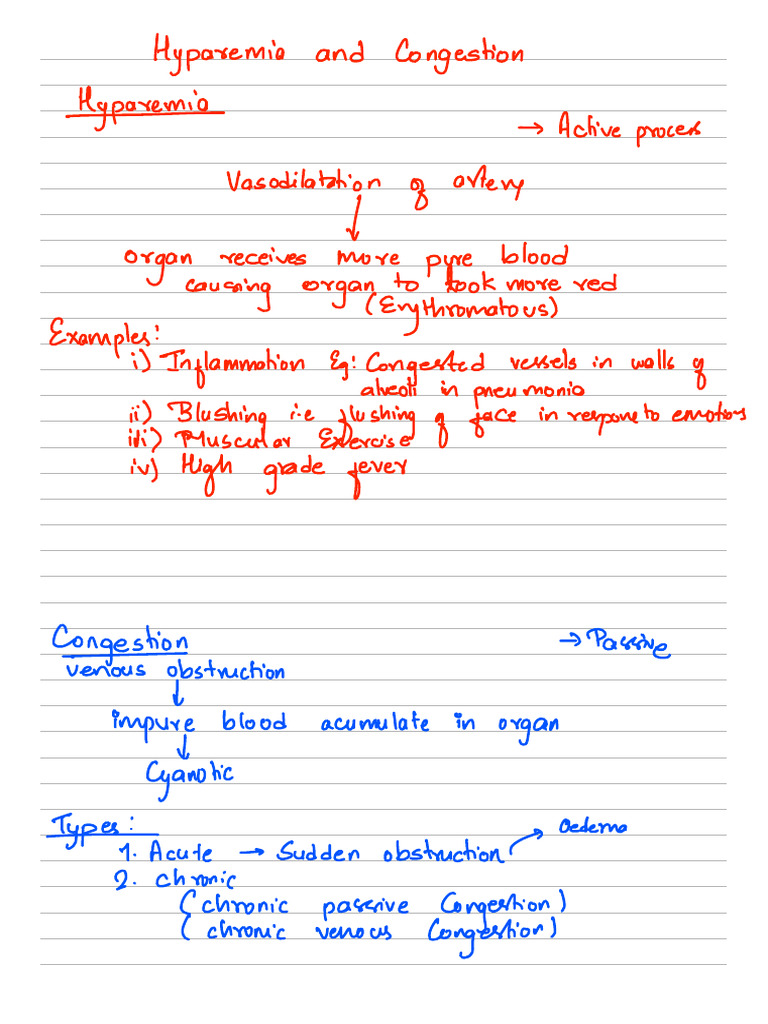 Hyparemia and Congestion
Hyparemia
→ Active process
Vasodilatation of artery
↓
organ receives more pure blood
causing organ to look more red
(Erythromatous)
Examples:
i) Inflammation Eg: Congested vessels in walls of
alveoli in pneumonia
ii) Blushing i.e flushing of face in respone to emotions
iii) Muscular Exercise
iv) High grade fever
Congestion
→ Passive
venous obstruction
↓
impure blood acumulate in organ
↓
Cyanotic
Types:
1. Acute → Sudden obstruction → Oedema
2. chronic
(chronic passive Congestion)
(chronic venous Congestion)